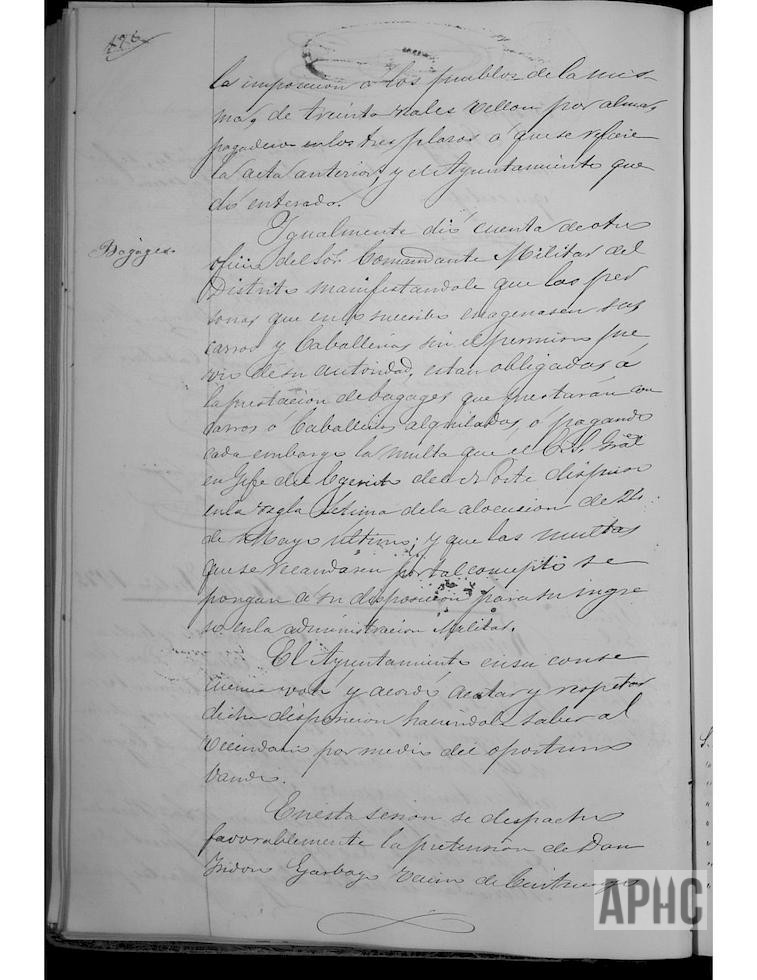 126
la imposición á los pueblos de la mis-
ma, de treinta reales vellon por almas,
pagaderos en los tres plazos á que se refiere
la acta anterior, y el Ayuntamiento que
dó enterado.
Bagages.
Igualmente dió cuenta de otro
oficio del Sor. Comandante Militar del
Distrito manifestandole que las per
sonas que en lo sucesibo enagenasen sus
carros y Caballerias sin el permiso pre
vio de su autoridad, estan obligadas á
la prestacion de bagages que prestarán con
carros ó Caballerias alquiladas, ó pagando
cada embargo la multa que el E. S. Gral
en Gefe del Egercito del Norte dispuso
en la regla setima de la alocusion de 24
de Mayo último; y que las multas
que se recaudasen por tal concepto se
pongan á su disposicion para su ingre
so en la administracion Militar.
El Ayuntamiento en su conse
cuencia votó y acordó acatar y respetar
dicha disposicion haciendola saber al
Vecindario por medio del oportuno
vando.
En esta sesion se despachó
favorablemente la pretension de Don
Isidoro Garbayo vecino de Cintruenigo
APHC